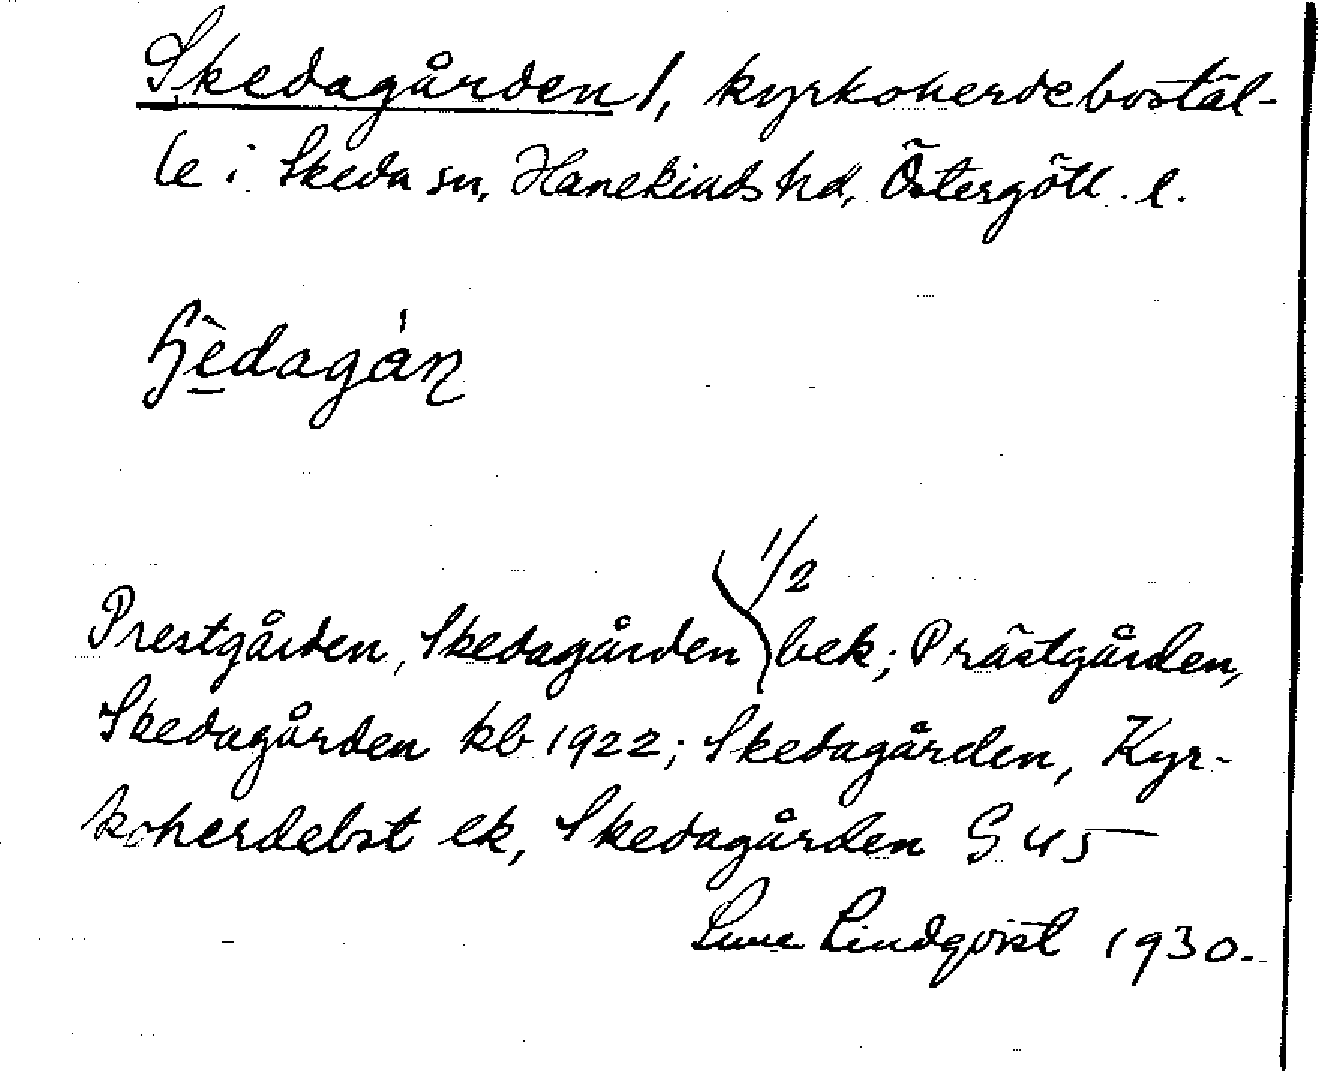 Skedagården 1, kyrkoherdebostäl-
le i Skeda sn, Hanekinds hd, Östergötl. l.
1/2
Prestgården, Skedagården bek; Prästgården,
Skedagården kb 1922; Skedagården, Kyr-
koherdebst ek, Skedagården G 45
Sune Lindqvist 1930.